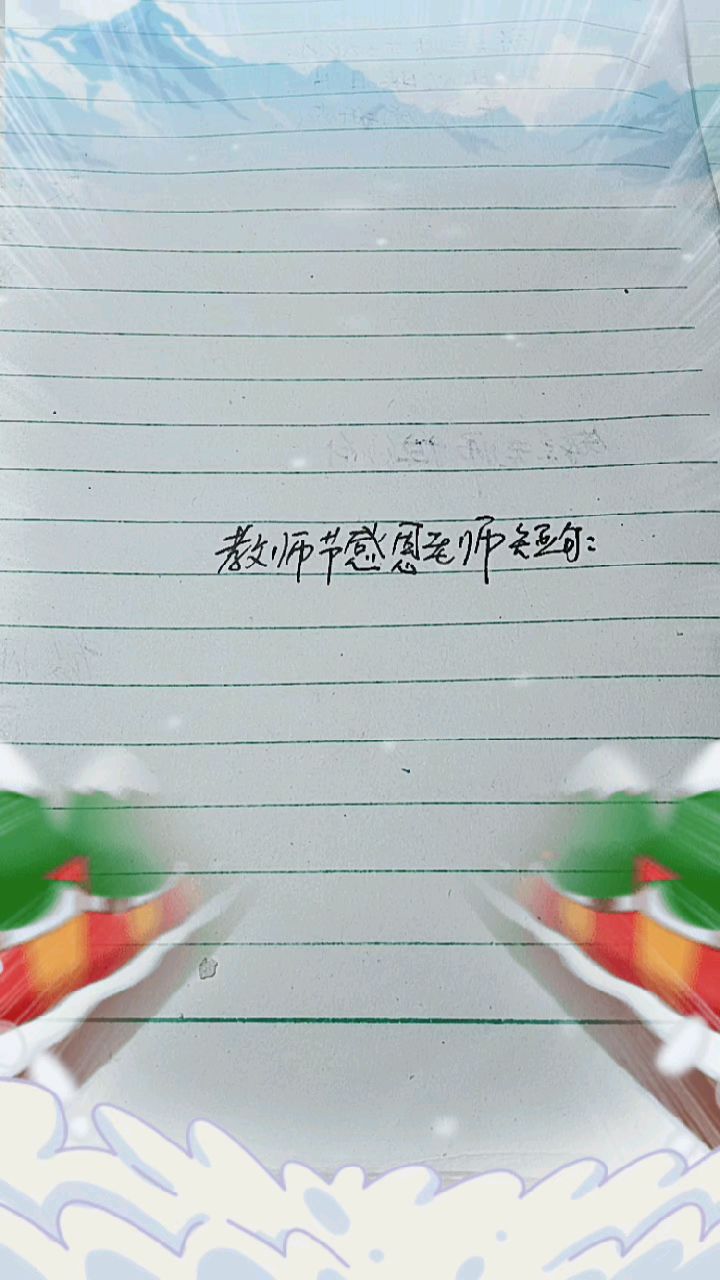 教师节感恩老师短句：